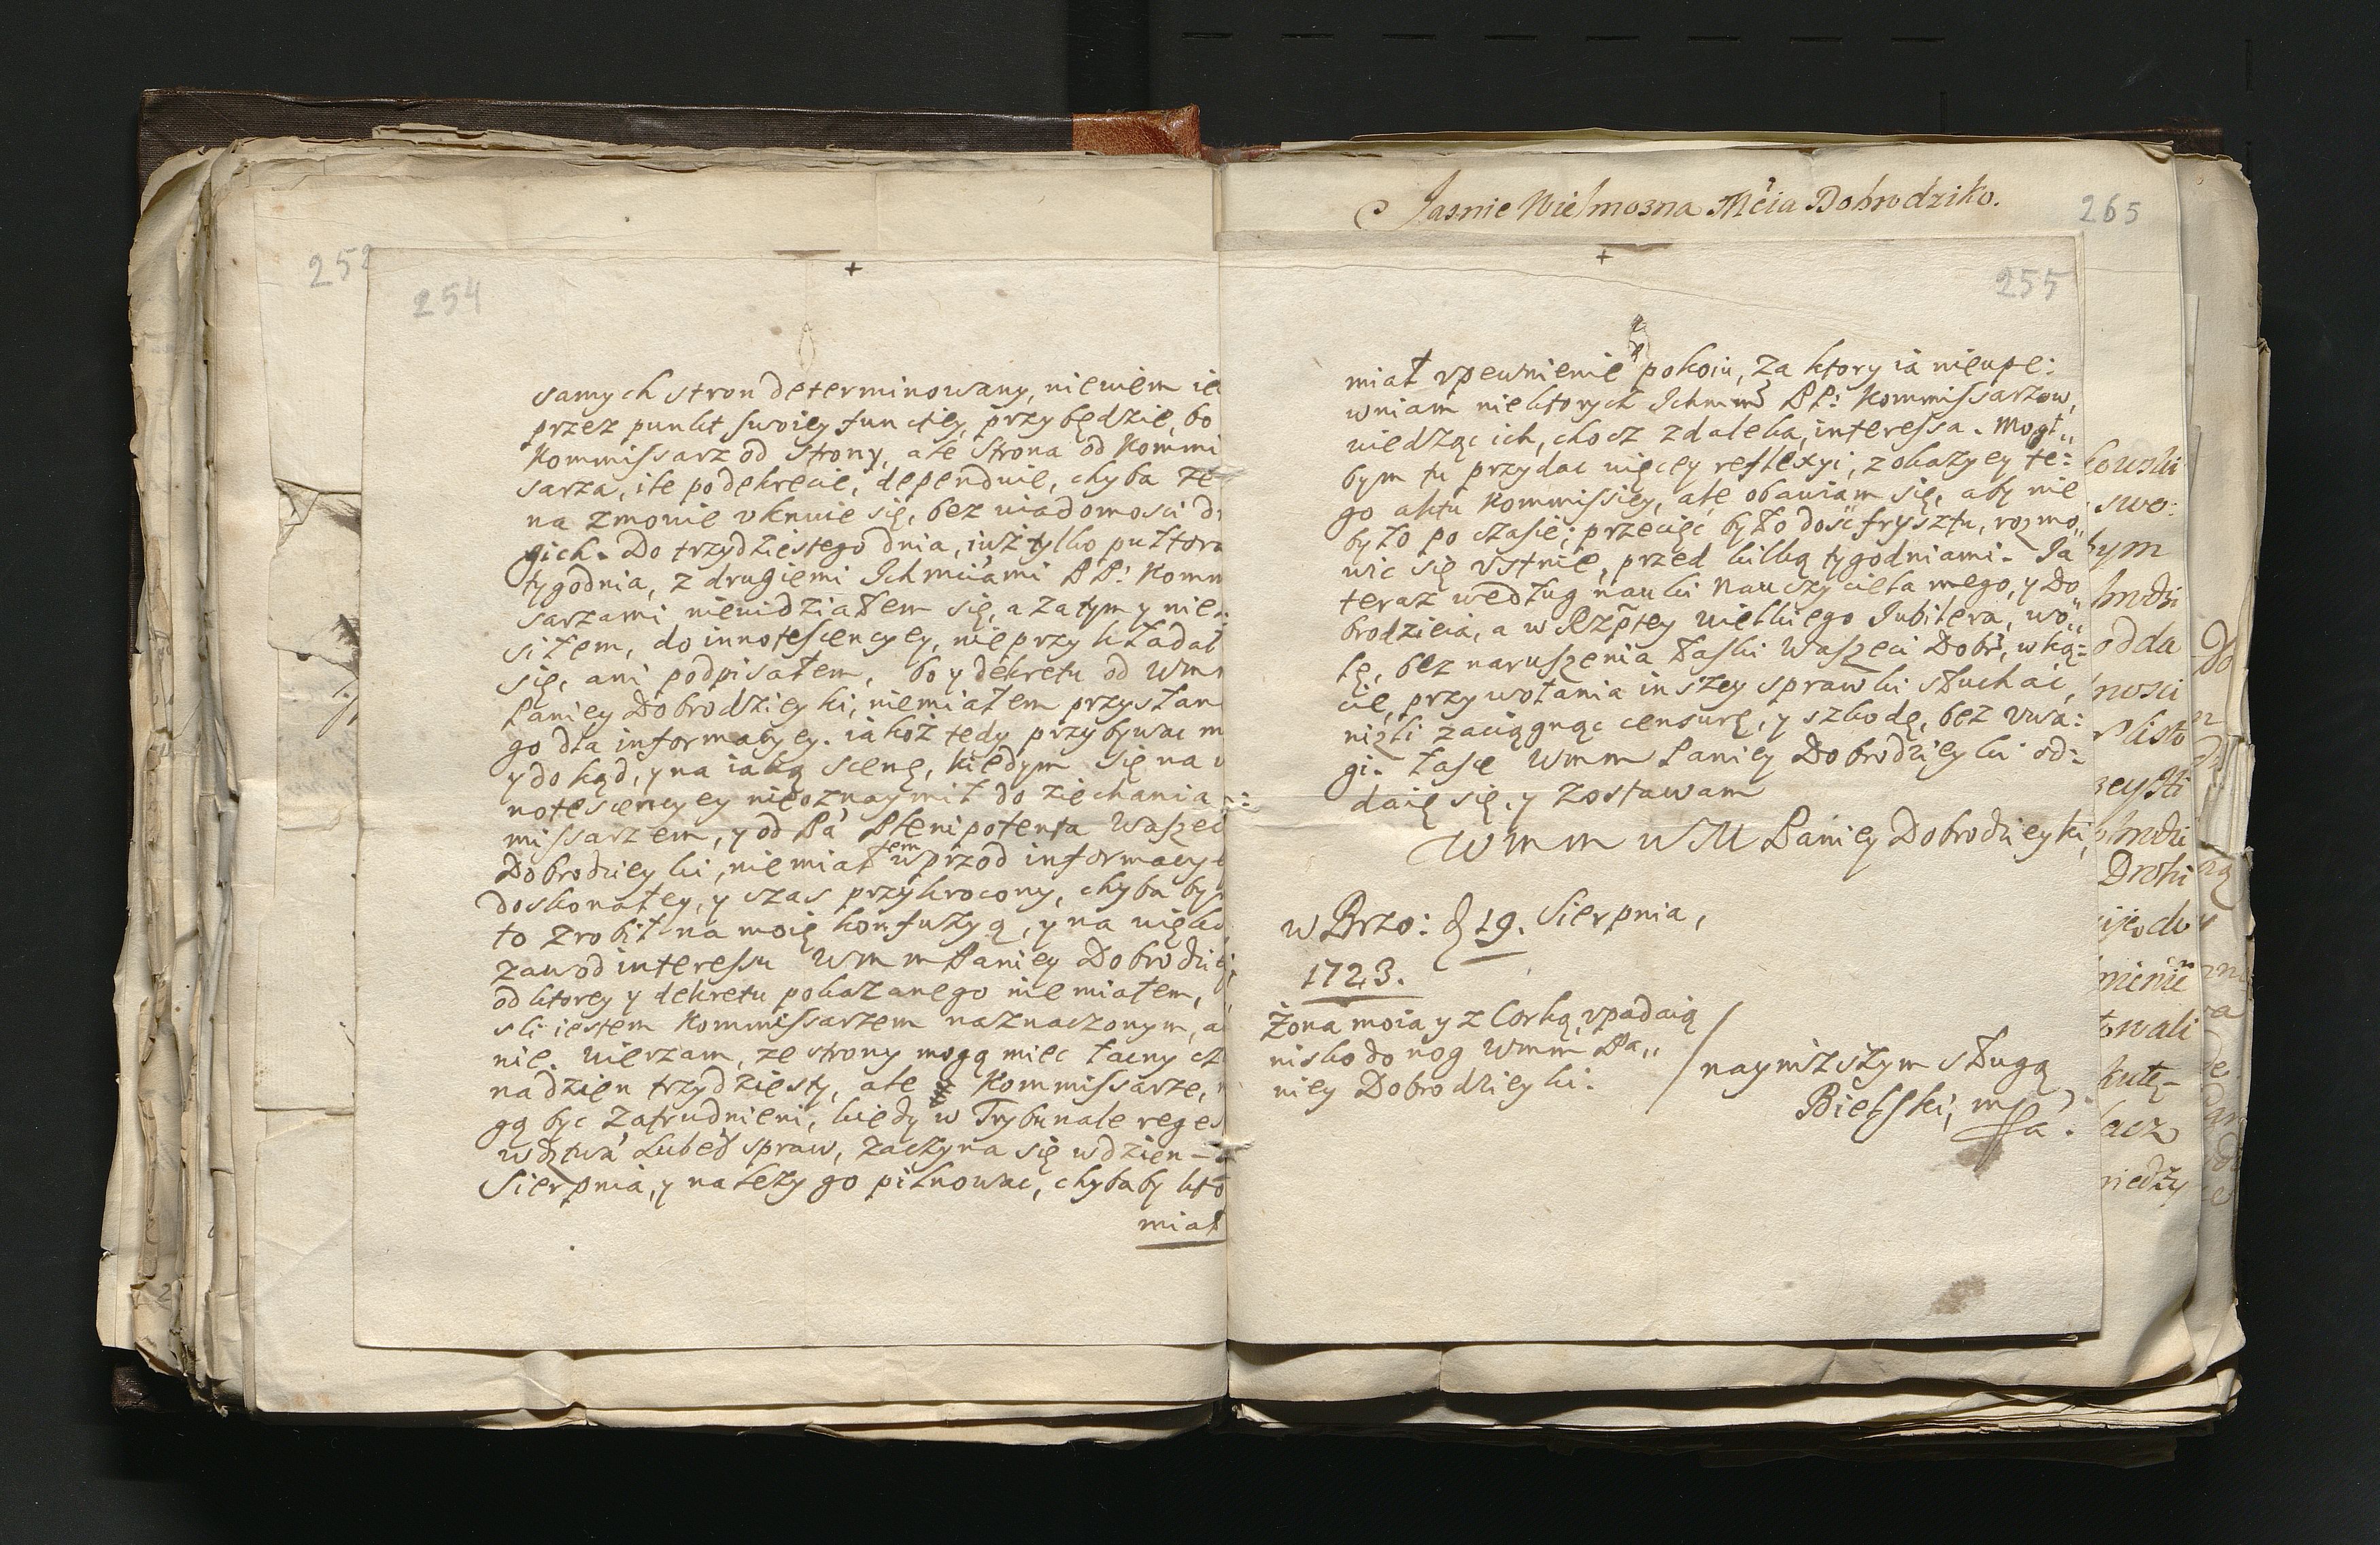 252
254
samych stron determinowany, niewiem ie
przez punkt swoiey functiey, przybędzie, bo
Kommissarz od Strony, ale Strona od Kommi
sarza, ile podekrecie, dependuie, chyba ze
na zmowie vknuie się, bez wiadomosci dr
gich. Do trzydziestego dnia, iuż tylko pułtora
tygodnia, z drugiemi Ichmciami PP: Komm
sarzami niewidziałem się, a zatym y nie
siłem, do innotescencyey, nieprzykładał
się, ani podpisałem, bo y dekretu od Wm
Paniey Dobrodzieyki, niemiałem przysłan
go dla informacyey. iakoż tedy przybywac m
y do kąd, y na iaką scenę, kiedym się na
notescencyey nieoznaymił do ziechania
missarzem, y od Pá Plenipotenta Waszec
Dobrodzieyki, niemiałem wprzod informacy
doskonałey, y czas przykrocony, chyba by
to zrobił na moię konfuzyą, y na więks
zawod interessu Wmm Paniey Dobrodzi
od ktorey y dekretu pokazanego niemiałem,
sli iestem Kommissarzem naznaczonym, a
nie. wierzam, ze strony mogą miec łacny cz
na dzien trzydziesty, ale Kommissarze,
gą byc zatrudnieni, kiedy w Trybunale reges
wdztwá Lubeł spraw, zaczyna się w dzien
Sierpnia, y nalezy go pilnowac, chybaby kto
miał
Jasnie Wielmozna Mcia Dobrodziko.
265
255
miał vpewnienie pokoiu, za ktory ia nieupe:
wniam niektorych Ichmm PP: Kommissarzow,
wiedząc ich, chocz zdaleka, interessa. Mogł„
bym tu przydac więcey reflexyi, z okazyey te:
go aktu Kommissiey, ale obawiam się, aby nie
było po czasie; przecięć było dość frysztu, rozmo„
wic się vstnie, przed kilką tygodniami. Ia
teraz według nauki Nauczyciela mego, y Do
brodzieia, a w Rzptey wielkiego Jubilera, wo„
lę, bez naruszenia łaski Waszeci Dobr, w ką:
cie, przywołania inszey sprawki słuchać,
niźli zaciągnąc censurę, y szkodę, bez vwa:
gi. Łasce Wmm Paniey Dobrodzieyki od:
daię się, y zostawam
Wmm WM Paniey Dobrodzieyki,
w Brzo: d 19. Sierpnia,
1723.
Żona moia y z Corką vpadaią
nisko do nog Wmm Pa„
niey Dobrodzieyki.
nayniższym sługą
Bielski, mp
kowski
swo:
bym
odda
nosci
Drohi
nienie
towali
kutę-
acz
niedzy
Do